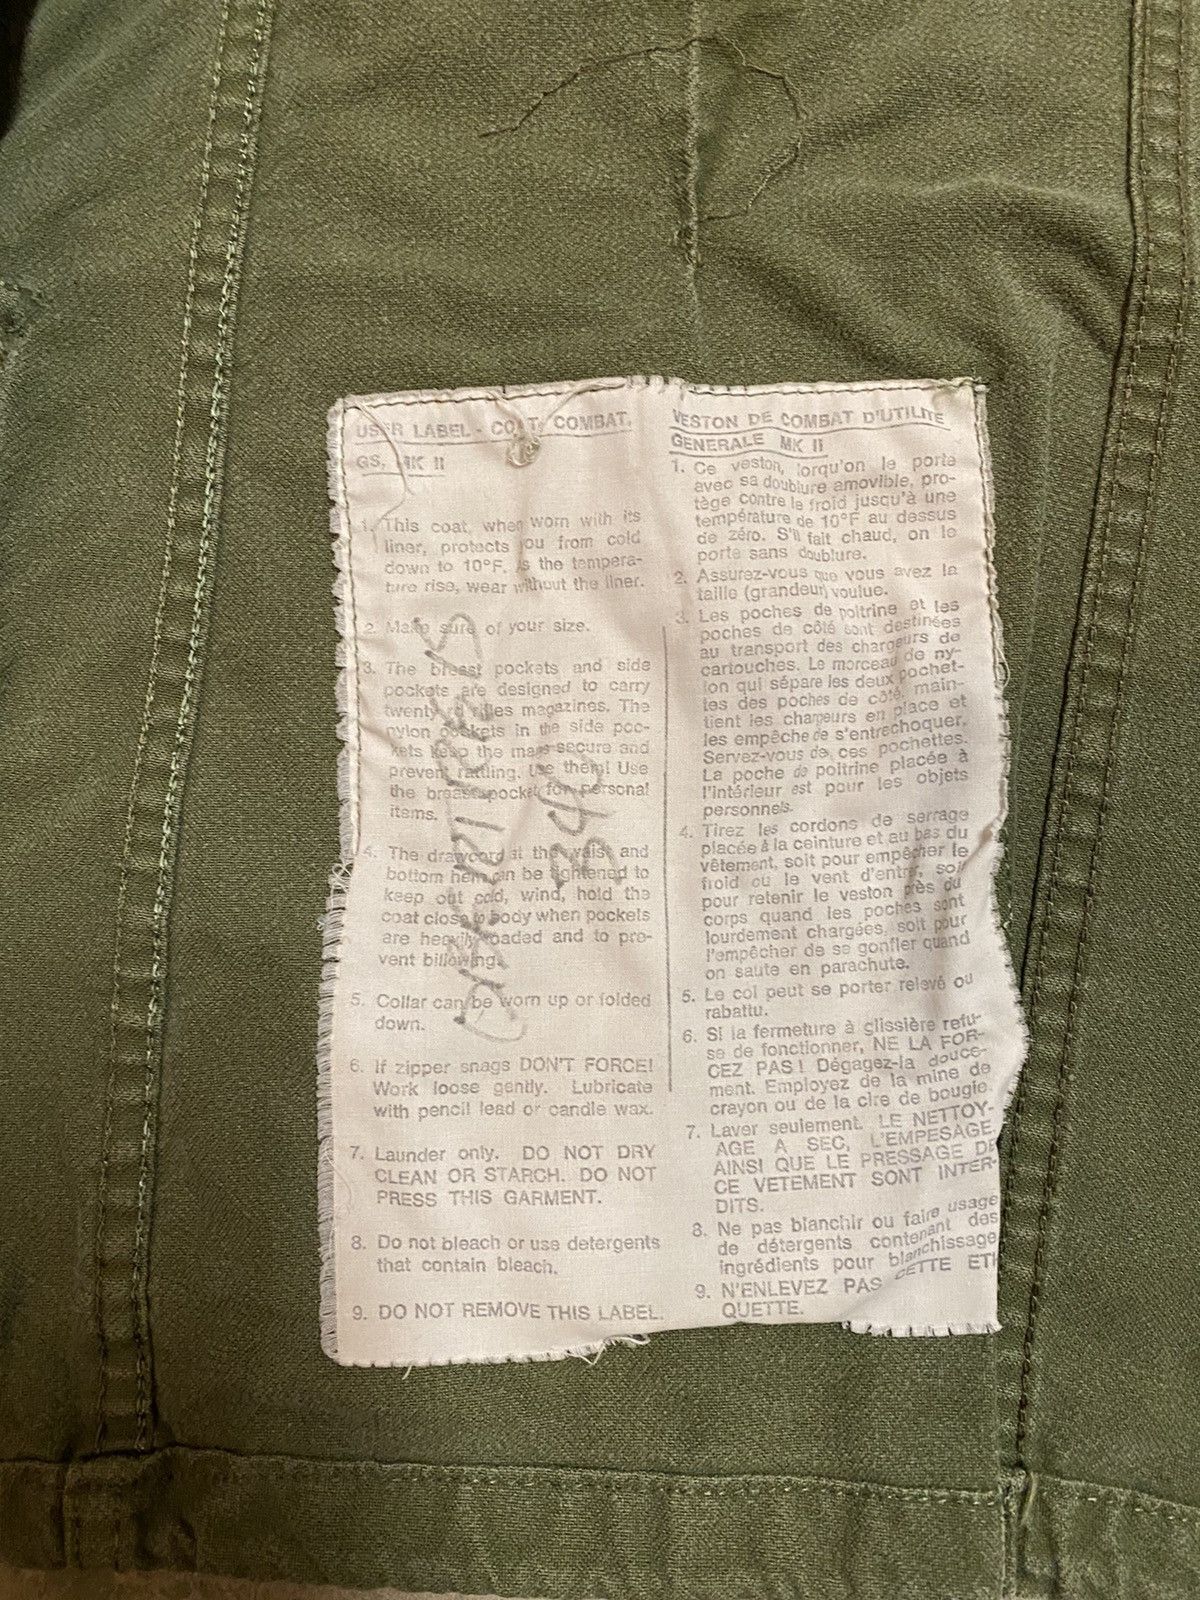 USER LABEL - COAT, COMBAT,
GS, MK II
1. This coat, when worn with its
liner, protects you from cold
down to 10°F. As the tempera-
ture rise, wear without the liner.
2. Make sure of your size.
3. The breast pockets and side
pockets are designed to carry
twenty rd rifles magazines. The
nylon pockets in the side poc-
kets keep the mags secure and
prevent rattling. Use them! Use
the breast pocket for personal
items.
4. The drawcord at the waist and
bottom hem can be tightened to
keep out cold, wind, hold the
coat close to body when pockets
are heavily loaded and to pre-
vent billowing.
5. Collar can be worn up or folded
down.
6. If zipper snags DON'T FORCE!
Work loose gently. Lubricate
with pencil lead or candle wax.
7. Launder only. DO NOT DRY
CLEAN OR STARCH. DO NOT
PRESS THIS GARMENT.
8. Do not bleach or use detergents
that contain bleach.
9. DO NOT REMOVE THIS LABEL.
VESTON DE COMBAT D'UTILITE
GENERALE MK II
1. Ce veston, lorqu'on le porte
avec sa doublure amovible, pro-
tège contre le froid jusqu'à une
température de 10°F au dessus
de zéro. S'il fait chaud, on le
porte sans doublure.
2. Assurez-vous que vous avez la
taille (grandeur) voulue.
3. Les poches de poitrine et les
poches de côté sont destinées
au transport des chargeurs de
cartouches. Le morceau de ny-
lon qui sépare les deux pochet-
tes des poches de côté, main-
tient les chargeurs en place et
les empêche de s'entrechoquer.
Servez-vous de ces pochettes.
La poche de poitrine placée à
l'intérieur est pour les objets
personnels.
4. Tirez les cordons de serrage
placée à la ceinture et au bas du
vêtement, soit pour empêcher le
froid ou le vent d'entrer, soit
pour retenir le veston près du
corps quand les poches sont
lourdement chargées, soit pour
l'empêcher de se gonfler quand
on saute en parachute.
5. Le col peut se porter relevé ou
rabattu.
6. Si la fermeture à glissière refu-
se de fonctionner, NE LA FOR-
CEZ PAS! Dégagez-la douce-
ment. Employez de la mine de
crayon ou de la cire de bougie.
7. Laver seulement. LE NETTOY-
AGE A SEC, L'EMPESAGE
AINSI QUE LE PRESSAGE DE
CE VETEMENT SONT INTER-
DITS.
8. Ne pas blanchir ou faire usage
de détergents contenant des
ingrédients pour blanchissage
9. N'ENLEVEZ PAS CETTE ETI
QUETTE.